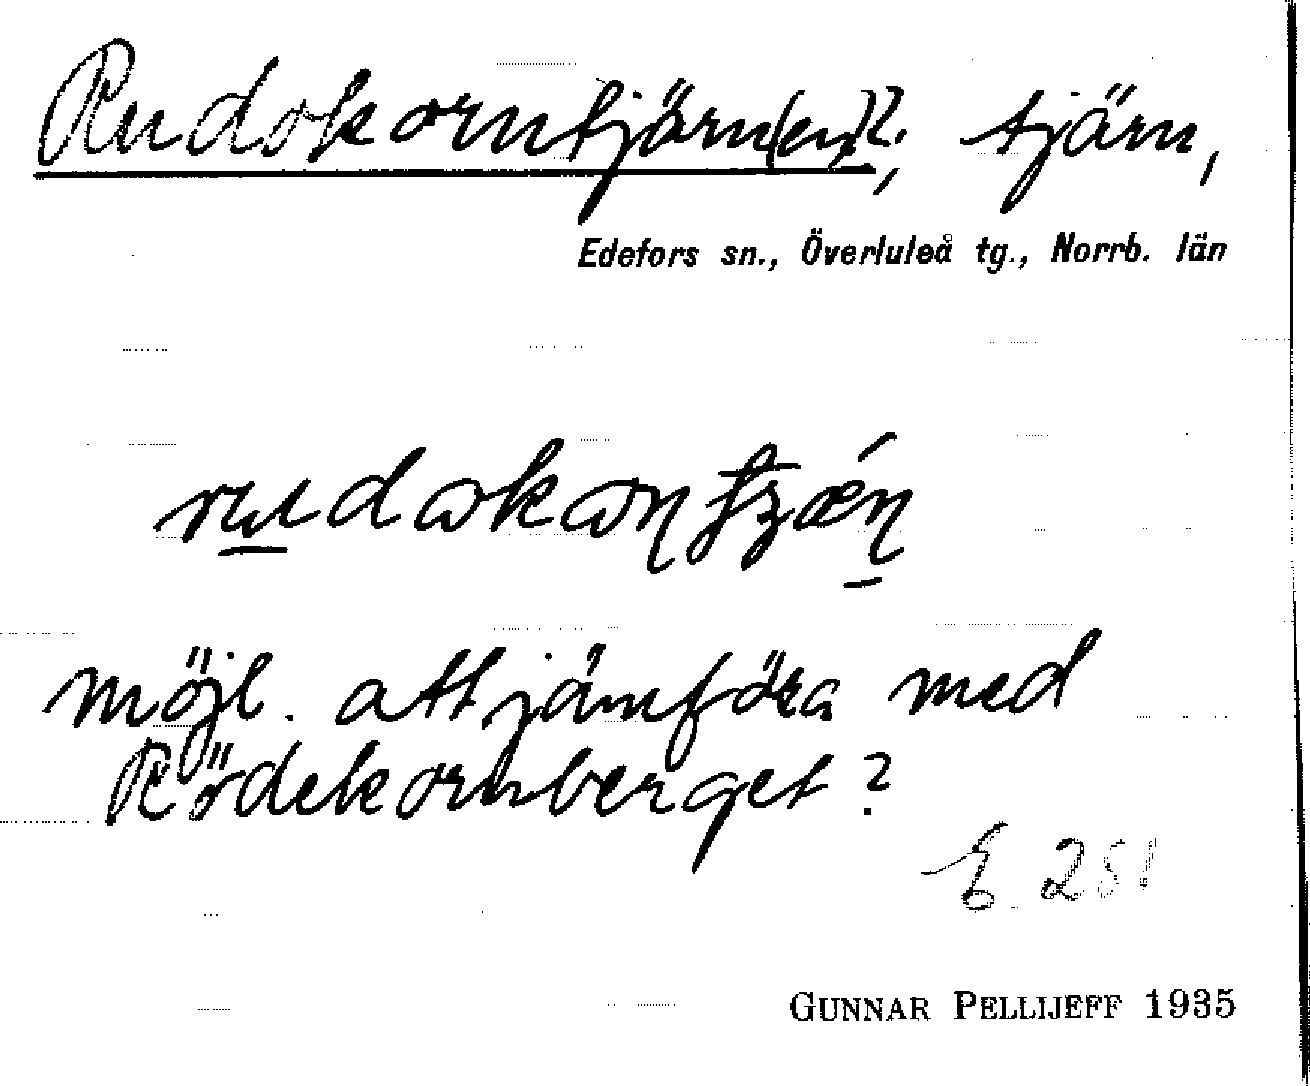 Rudokorntjärn(en)?, tjärn,
Edefors sn., Överluleå tg., Norrb. län
möjl. att jämföra med
Rödekornberget?
E 251
GUNNAR PELLIJEFF 1935